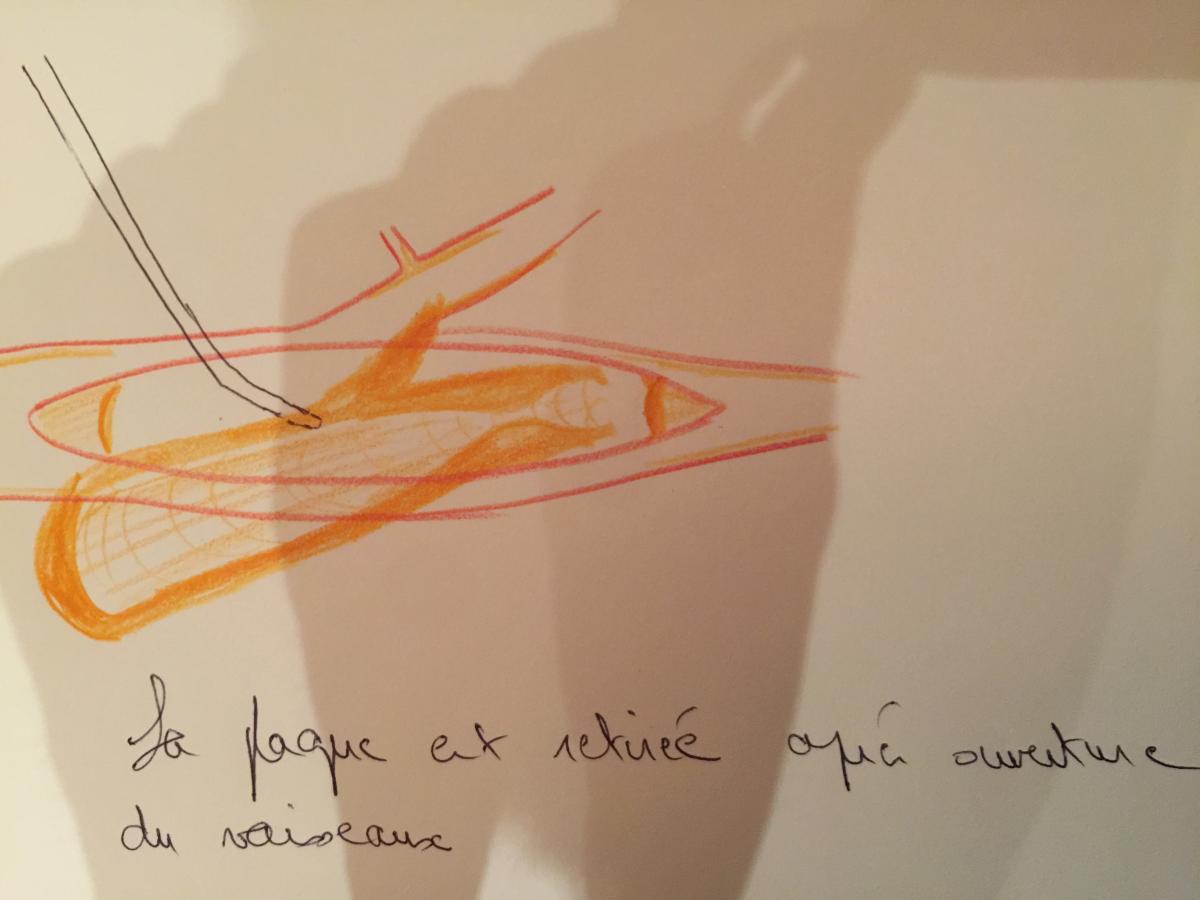 La plaque est retirée après ouverture
du vaisseaux